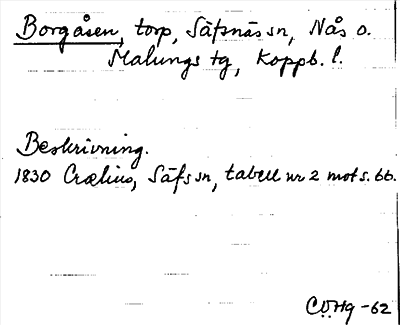 Borgåsen, torp, Säfsnäs sn, Nås o.
Malungs tg, Koppb. l.
Beskrivning.
1830 Crælius, Säfs sn, tabell nr 2 mot s. 66.
CUHg -62